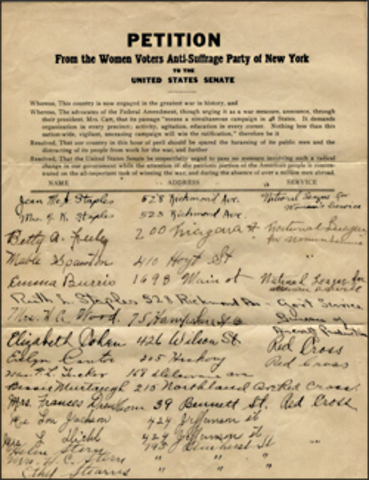 PETITION
From the Women Voters Anti-Suffrage Party of New York
TO THE
UNITED STATES SENATE
Whereas, This country is now engaged in the greatest war in history, and
Whereas, The advocates of the Federal Amendment, though urging it as a war measure, announce, through
their president, Mrs. Catt, that its passage "means a simultaneous campaign in 48 States. It demands
organization in every precinct; activity, agitation, education in every corner. Nothing less than this
nation-wide, vigilant, unceasing campaign will win the ratification," therefore be it
Resolved, That our country in this hour of peril should be spared the harassing of its public men and the
distracting of its people from work for the war, and further
Resolved, That the United States Senate be respectfully urged to pass no measure involving such a radical
change in our government while the attention of the patriotic portion of the American people is concen-
trated on the all-important task of winning the war, and during the absence of over a million men abroad.
NAME ADDRESS SERVICE
Jean Staples 528 Richmond Ave. National League for
Mrs. Staples 523 Richmond Ave. Woman's Service
Betty A. 200 Niagara St National League
Mable 410 Hoyt St for Woman's
Emma Burris 1698 Main st National League for
Ruth L. Staples 529 Richmond Ave Govt Service
Mrs. W.A. Wood 75 Hampshire St Bureau of
Elizabeth Cohan 426 Wilson St. Red Cross
Evelyn Cantor 205 Hickory Red Cross
Tucker 168 Delaware av
Bessie 215 Northland Red Cross.
Mrs Frances 39 Bennett St. Red Cross
Jackson 424 Jefferson St "
429 Jefferson St "
Helen Stern 195 St "
Mrs. H. C. Stern " " "
Ethel Stearns " " "